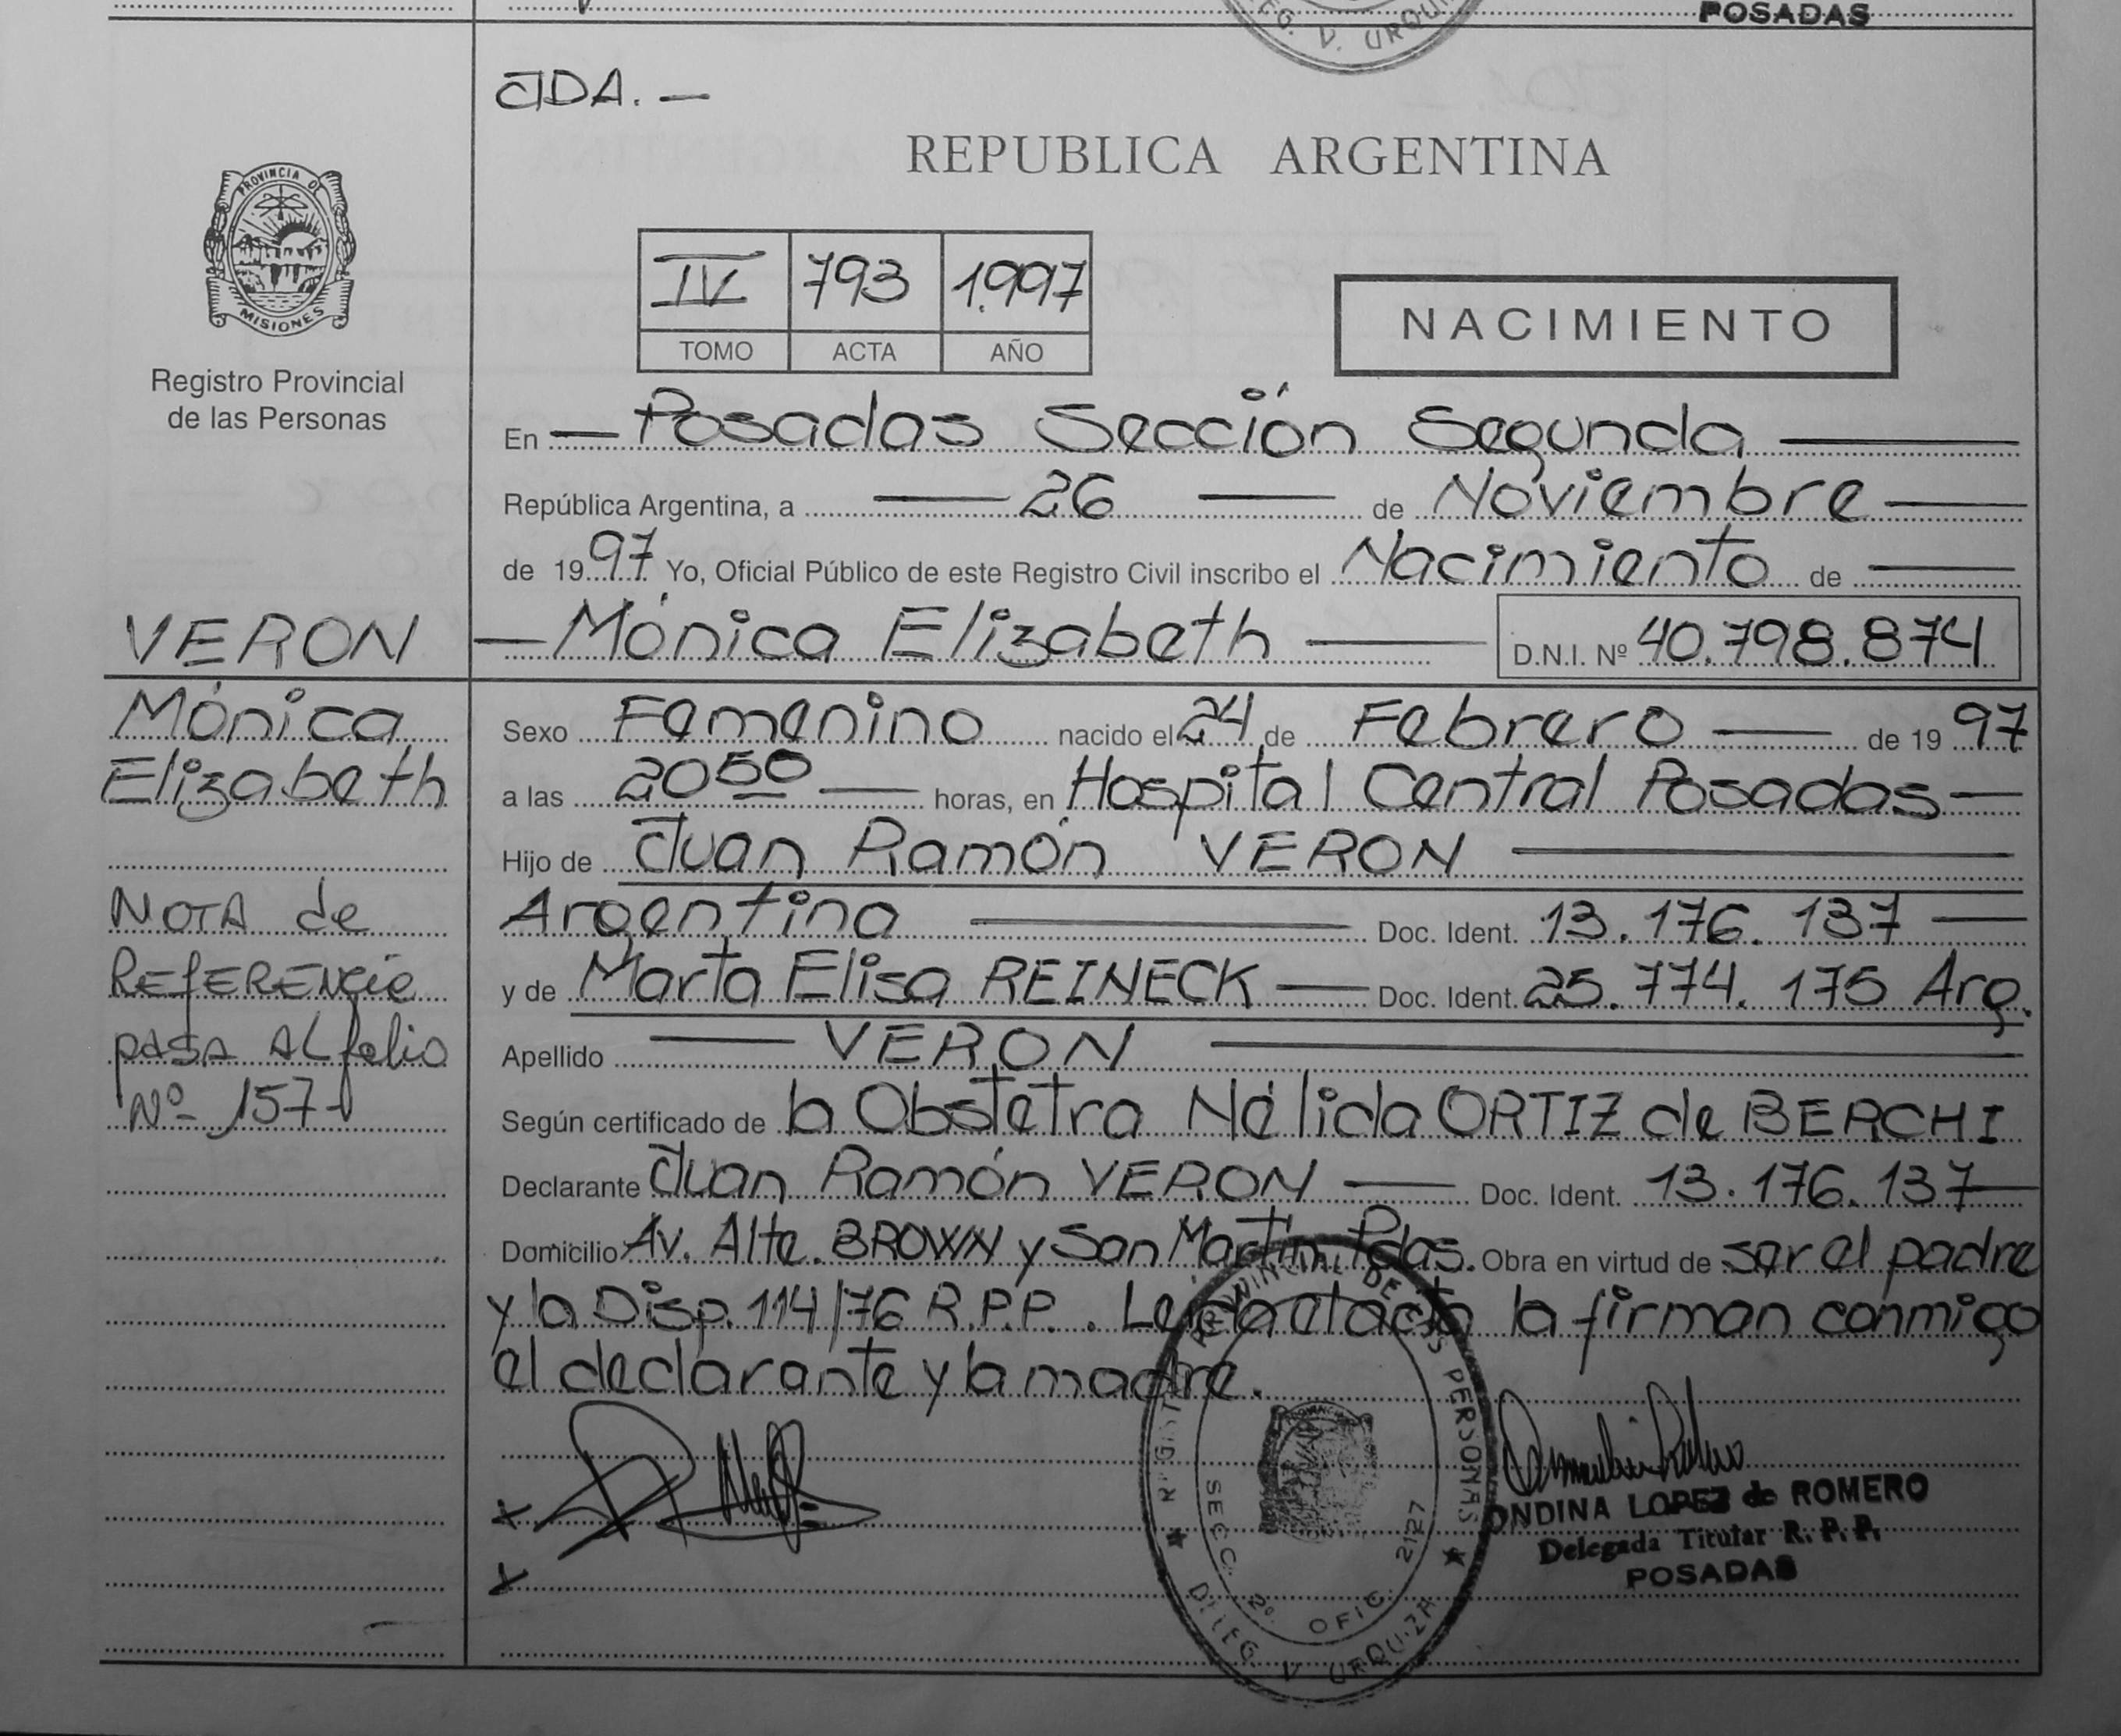 POSADAS
LEG. V. URQUI
JDA. —
REPUBLICA ARGENTINA
PROVINCIA DE
MISIONES
IV 793 1.997
TOMO ACTA AÑO
NACIMIENTO
Registro Provincial
de las Personas
En — Posadas Sección Segunda —
República Argentina, a — 26 — de Noviembre —
de 1997 Yo, Oficial Público de este Registro Civil inscribo el Nacimiento de —
VERON — Mónica Elizabeth — D.N.I. Nº 40.798.874
Mónica
Elizabeth
Sexo Femenino nacido el 24 de Febrero — de 1997
a las 20 50 — horas, en Hospital Central Posadas —
Hijo de Juan Ramón VERON —
Argentina — Doc. Ident. 13.176.137 —
y de Marta Elisa REINECK — Doc. Ident. 25.774.175 Arg.
Apellido — VERON —
Según certificado de la Obstetra Nélida ORTIZ de BERCHI
Declarante Juan Ramón VERON — Doc. Ident. 13.176.137 —
Domicilio Av. Alte. BROWN y San Martín Pdas. Obra en virtud de ser el padre
y la Disp. 114/76 R.P.P.. Leída el acta la firman conmigo
el declarante y la madre.
NOTA de
REFERENCIA
PASA AL folio
Nº 157
REGISTRO PROVINCIAL DE LAS PERSONAS
SECC. 2º OFIC. 2127
DELEG. V. URQUIZA
ONDINA LOPEZ de ROMERO
Delegada Titular R. P. P.
POSADAS